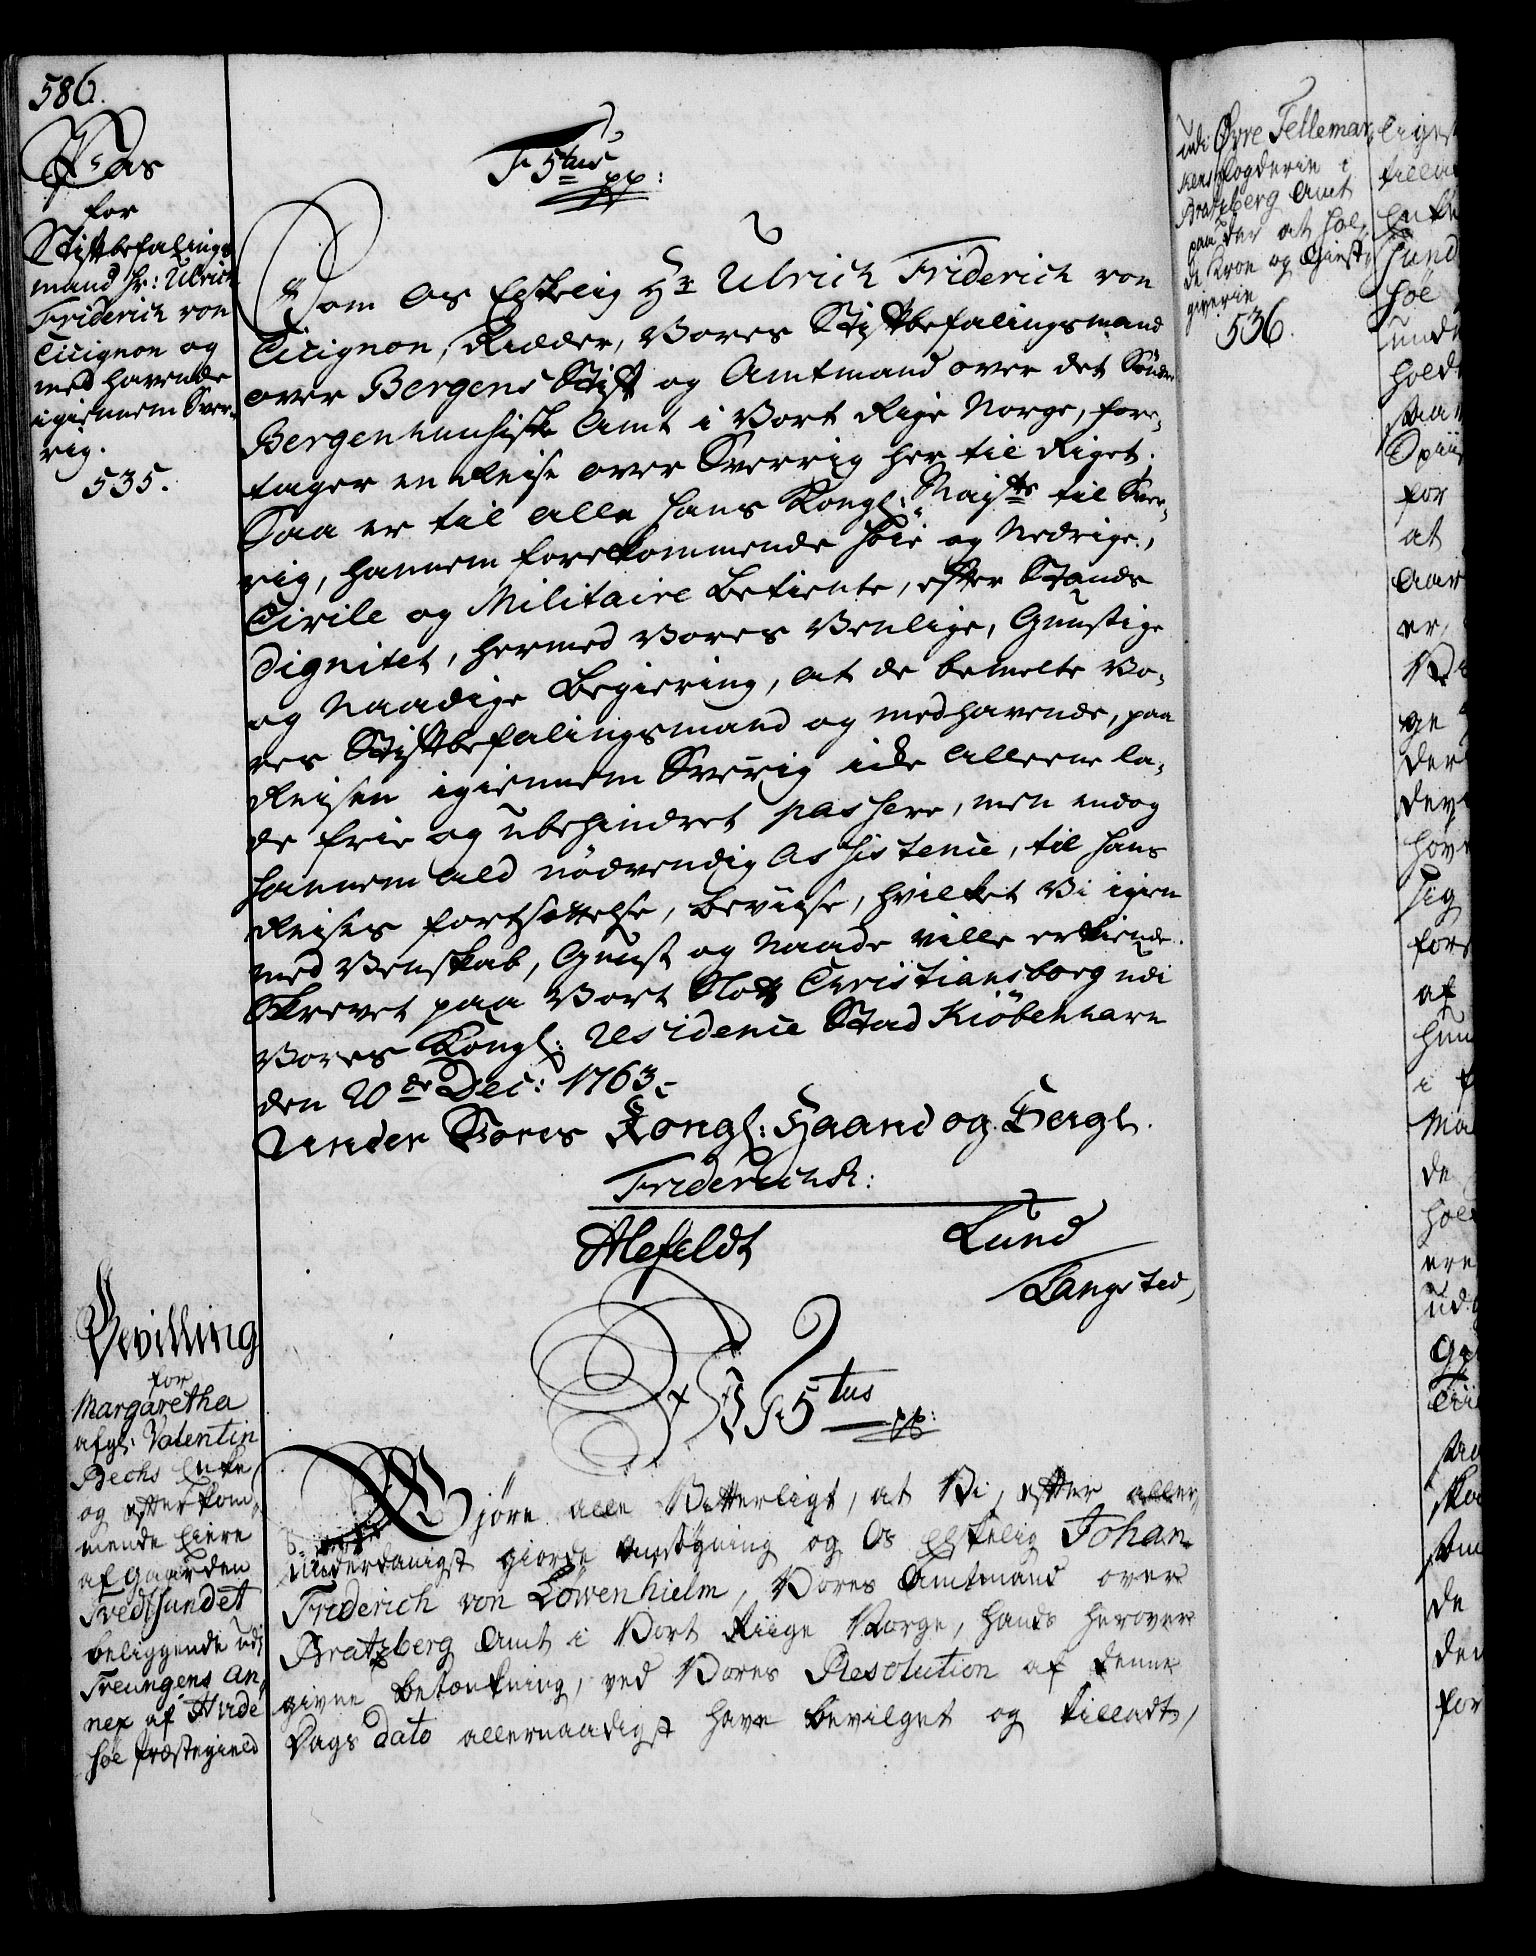 586.
Pas
for
Stiftbefalings-
mand Hr: Ulrich
Friderich von
Cicignon og
med havende
igiennem Sver-
rig.
535.
F 5tus pp:
Som Os Elskelig Hr Ulrich Friderich von
Cicignon, Ridder, Vores Stiftbefalingsmand
over Bergens Stift og Amtmand over det Sönder
Bergenhuusiske Amt i Vort Rige Norge, fore-
tager en Reise over Sverrig her til Riget.
Saa er til alle Hans Kongl: Mayts til Sver-
rig, hannem forekommende høie og Nedrige,
Civile og Militaire Betiente, efter Stands
Dignitet, hermed Vores Venlige, Gunstige
og Naadige Begiering, at de bemelte Vo-
res Stiftbefalingsmand og medhavende, paa
Reisen igiennem Sverrig icke alleene la-
de frie og ubehindret passere, men endog
hannem ald nödvendig Assistence, til hans
Reises fortsættelse, beviise, hvilket Vi igien
med Venskab, Gunst og Naade ville erkiende.
Skrevet paa Vort Slott Christiansborg udi
Vores Kongl: Residence Stad Kiöbenhavn
den 20de Dec: 1763.
Under Vores Kongl: Haand og Seigl.
Friderich R:
Alefeldt
Lund
Langsted,
Bevilling
for
Margaretha
afgl: Valentin
Bechs Enke
og efterkom-
mende Eiere
af Gaarden
Tvedtsundet
beliggende udi
Treungens An-
nex af Hvide-
söe Præstegield
F 5tus pp:
Gjöre alle Vitterligt, at Vi, efter aller-
underdanigst giorde Ansögning og Os Elskelig Johan
Friderich von Löwenhielm, Vores Amtmand over
Bratzberg Amt i Vort Riige Norge, hands herover
givne betænkning, ved Vores Resolution af denne
Dags dato allernaadigst have bevilget og tilladt,
udi Øvre Tellemar-
kens Fogderie i
Bratzberg Amt
paa der at hol-
de Kroe og Giestg-
giverie
536.